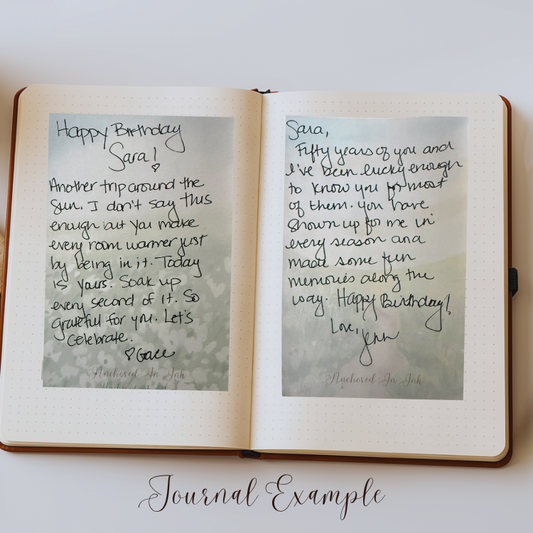 Happy Birthday
Sara!
Another trip around the
Sun. I don't say this
enough but you make
every room warmer just
by being in it. Today
is yours. Soak up
every second of it. So
grateful for you. Let's
Celebrate.
♡ Grace
Anchored In Ink
Sara,
Fifty years of you and
I've been lucky enough
to know you for most
of them. You have
shown up for me in
every season and
made some fun
memories along the
way. Happy Birthday!
Love,
Jenn
Anchored In Ink
Journal Example